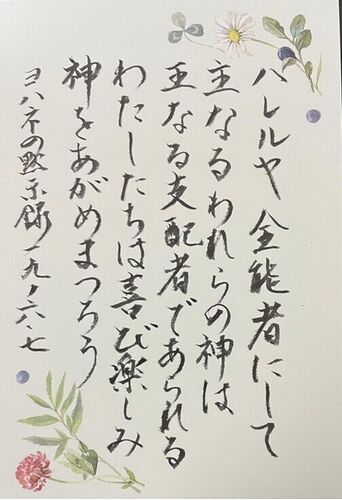 ハレルヤ 全能者にして
主なるわれらの神は
王なる支配者であられる
わたしたちは喜び楽しみ
神をあがめまつろう
ヨハネの黙示録一九ノ六・七